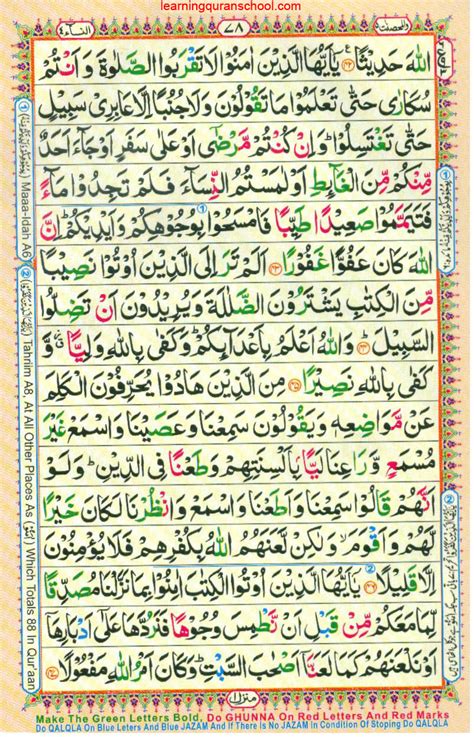 learningquranschool.com
والمحصنت ٥
٧٨
النسآء ٤
اللّٰهَ حَدِيْثًا ﴿۴۲﴾ يٰٓاَيُّهَا الَّذِيْنَ اٰمَنُوْا لَا تَقْرَبُوا الصَّلٰوةَ وَاَنْتُمْ
سُكَارٰى حَتّٰى تَعْلَمُوْا مَا تَقُوْلُوْنَ وَلَا جُنُبًا اِلَّا عَابِرِيْ سَبِيْلٍ
حَتّٰى تَغْتَسِلُوْا ؕ وَاِنْ كُنْتُمْ مَّرْضٰٓى اَوْ عَلٰى سَفَرٍ اَوْ جَآءَ اَحَدٌ
مِّنْكُمْ مِّنَ الْغَآئِطِ اَوْ لٰمَسْتُمُ النِّسَآءَ فَلَمْ تَجِدُوْا مَآءً
فَتَيَمَّمُوْا صَعِيْدًا طَيِّبًا فَامْسَحُوْا بِوُجُوْهِكُمْ وَاَيْدِيْكُمْ ؕ اِنَّ
اللّٰهَ كَانَ عَفُوًّا غَفُوْرًا ﴿۴۳﴾ اَلَمْ تَرَ اِلَى الَّذِيْنَ اُوْتُوْا نَصِيْبًا
مِّنَ الْكِتٰبِ يَشْتَرُوْنَ الضَّلٰلَةَ وَيُرِيْدُوْنَ اَنْ تَضِلُّوا
السَّبِيْلَ ﴿۴۴﴾ وَاللّٰهُ اَعْلَمُ بِاَعْدَآئِكُمْ ؕ وَكَفٰى بِاللّٰهِ وَلِيًّا ۗ وَّ
كَفٰى بِاللّٰهِ نَصِيْرًا ﴿۴۵﴾ مِنَ الَّذِيْنَ هَادُوْا يُحَرِّفُوْنَ الْكَلِمَ
عَنْ مَّوَاضِعِهٖ وَيَقُوْلُوْنَ سَمِعْنَا وَعَصَيْنَا وَاسْمَعْ غَيْرَ
مُسْمَعٍ وَّرَاعِنَا لَيًّۢا بِاَلْسِنَتِهِمْ وَطَعْنًا فِي الدِّيْنِ ؕ وَلَوْ
اَنَّهُمْ قَالُوْا سَمِعْنَا وَاَطَعْنَا وَاسْمَعْ وَانْظُرْنَا لَكَانَ خَيْرًا
لَّهُمْ وَاَقْوَمَ ۙ وَلٰكِنْ لَّعَنَهُمُ اللّٰهُ بِكُفْرِهِمْ فَلَا يُؤْمِنُوْنَ
اِلَّا قَلِيْلًا ﴿۴۶﴾ يٰٓاَيُّهَا الَّذِيْنَ اُوْتُوا الْكِتٰبَ اٰمِنُوْا بِمَا نَزَّلْنَا مُصَدِّقًا
لِّمَا مَعَكُمْ مِّنْ قَبْلِ اَنْ نَّطْمِسَ وُجُوْهًا فَنَرُدَّهَا عَلٰٓى اَدْبَارِهَآ
اَوْ نَلْعَنَهُمْ كَمَا لَعَنَّآ اَصْحٰبَ السَّبْتِ ؕ وَكَانَ اَمْرُ اللّٰهِ مَفْعُوْلًا ﴿۴۷﴾
Maaa-Idah A6
Tahriim A8, At All Other Places As
Which Totals 88 In Qur'aan
منزل ۱
Make The Green Letters Bold, Do GHUNNA On Red Letters And Red Marks
Do QALQLA On Blue Leters And Blue JAZAM And If There Is No JAZAM In Condition Of Stoping Do QALQLA